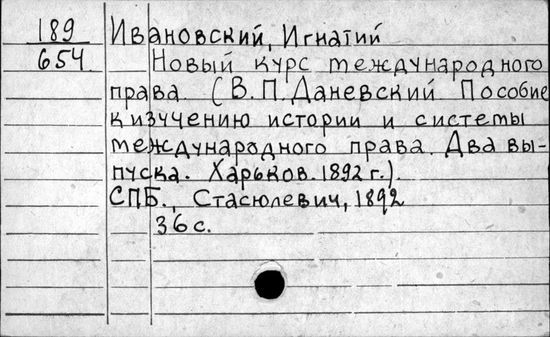 189 Ивановский, Игнатий
654 Новый курс международного
права. (В. П. Даневский Пособие
к изучению истории и системы
международного права. Два вы-
пуска. Харьков. 1892 г.).
СПБ., Стасюлевич, 1892
36 с.